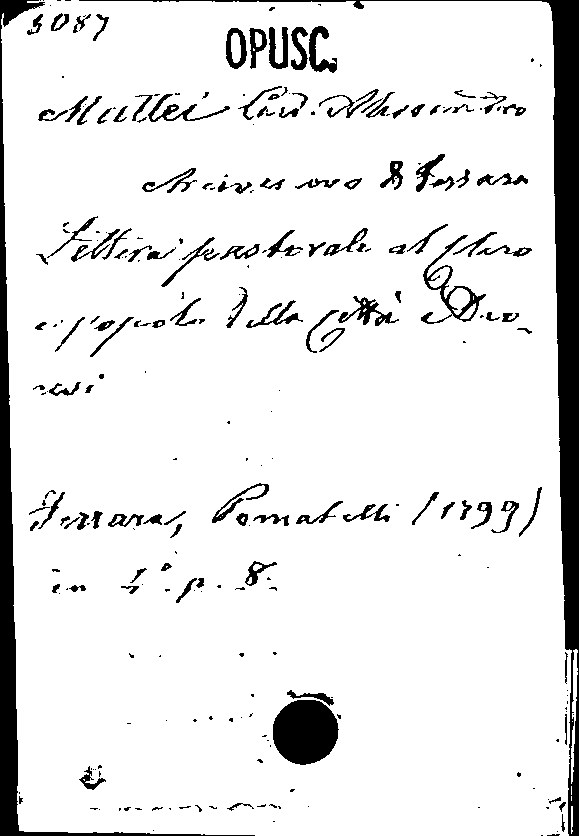 5087
OPUSC.
Mattei Card. Alessandro
Arcivescovo di Ferrara
Lettera pastorale al Clero
e popolo della Città e Dio-
cesi
Ferrara, Pomatelli (1799)
in 4° p. 8.